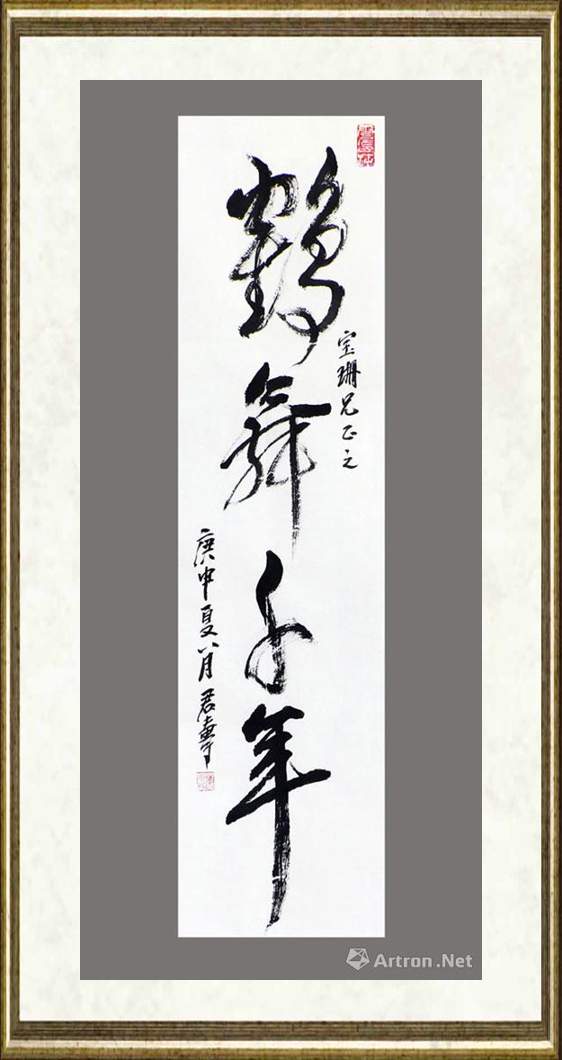 鹤舞千年
宝珊兄正之
庚申夏八月君寿
Artron.Net